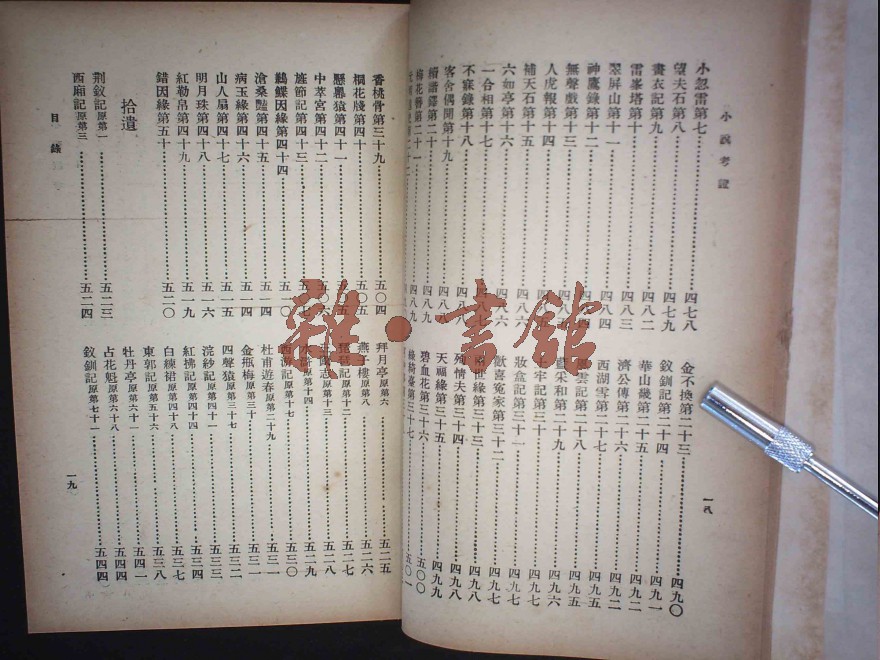 小說考證
小忽雷第七……四七八
望夫石第八……四七九
畫衣記第九……四八二
雷峯塔第十……四八三
翠屏山第十一……四八四
神鷹錄第十二
無聲戲第十三
人虎報第十四
補天石第十五
六如亭第十六……四八六
一合相第十七……四八七
不寐錄第十八……四八八
客舍偶聞第十九……四八八
續諧鐸第二十……四八九
梅花簪第二十一……四八九
金不換第二十三……四九〇
釵釧記第二十四……四九一
華山畿第二十五……四九二
濟公傳第二十六……四九二
西湖雪第二十七……四九五
雲記第二十八……四九五
藍采和第二十九……四九六
牢記第三十……四九七
妝盒記第三十一……四九七
歡喜寃家第三十二……四九七
世緣第三十三……四九八
列情夫第三十四……四九八
天福緣第三十五……四九九
碧血花第三十六……五〇〇
綠綺臺第三十七……五〇一
一八
香桃骨第三十九……五〇四
桐花牋第四十……五〇五
懸嶴猿第四十一
中萃宮第四十二……五〇六
旌節記第四十三
鶼鰈因緣第四十四……五一〇
滄桑豔第四十五……五一四
病玉緣第四十六……五一四
山人扇第四十七……五一五
明月珠第四十八……五一六
紅勒帛第四十九……五一九
錯因緣第五十……五二〇
拾遺
荆釵記原第一……五二三
西廂記原第三……五二四
拜月亭原第六……五二五
燕子樓原第八……五二六
琵琶記原第十二……五二七
三國志原第十三……五二八
水滸原第十四……五二九
西游記原第十七……五三〇
杜甫遊春原第二十九……五三一
金瓶梅原第三十……五三一
四聲猿原第三十七……五三二
浣紗記原第四十一……五三三
紅拂記原第四十四……五三四
白練裙原第四十八……五三七
東郭記原第五十六……五三八
牡丹亭原第六十一……五四一
占花魁原第六十八……五四四
釵釧記原第七十一……五四四
目錄
一九
雜·書館